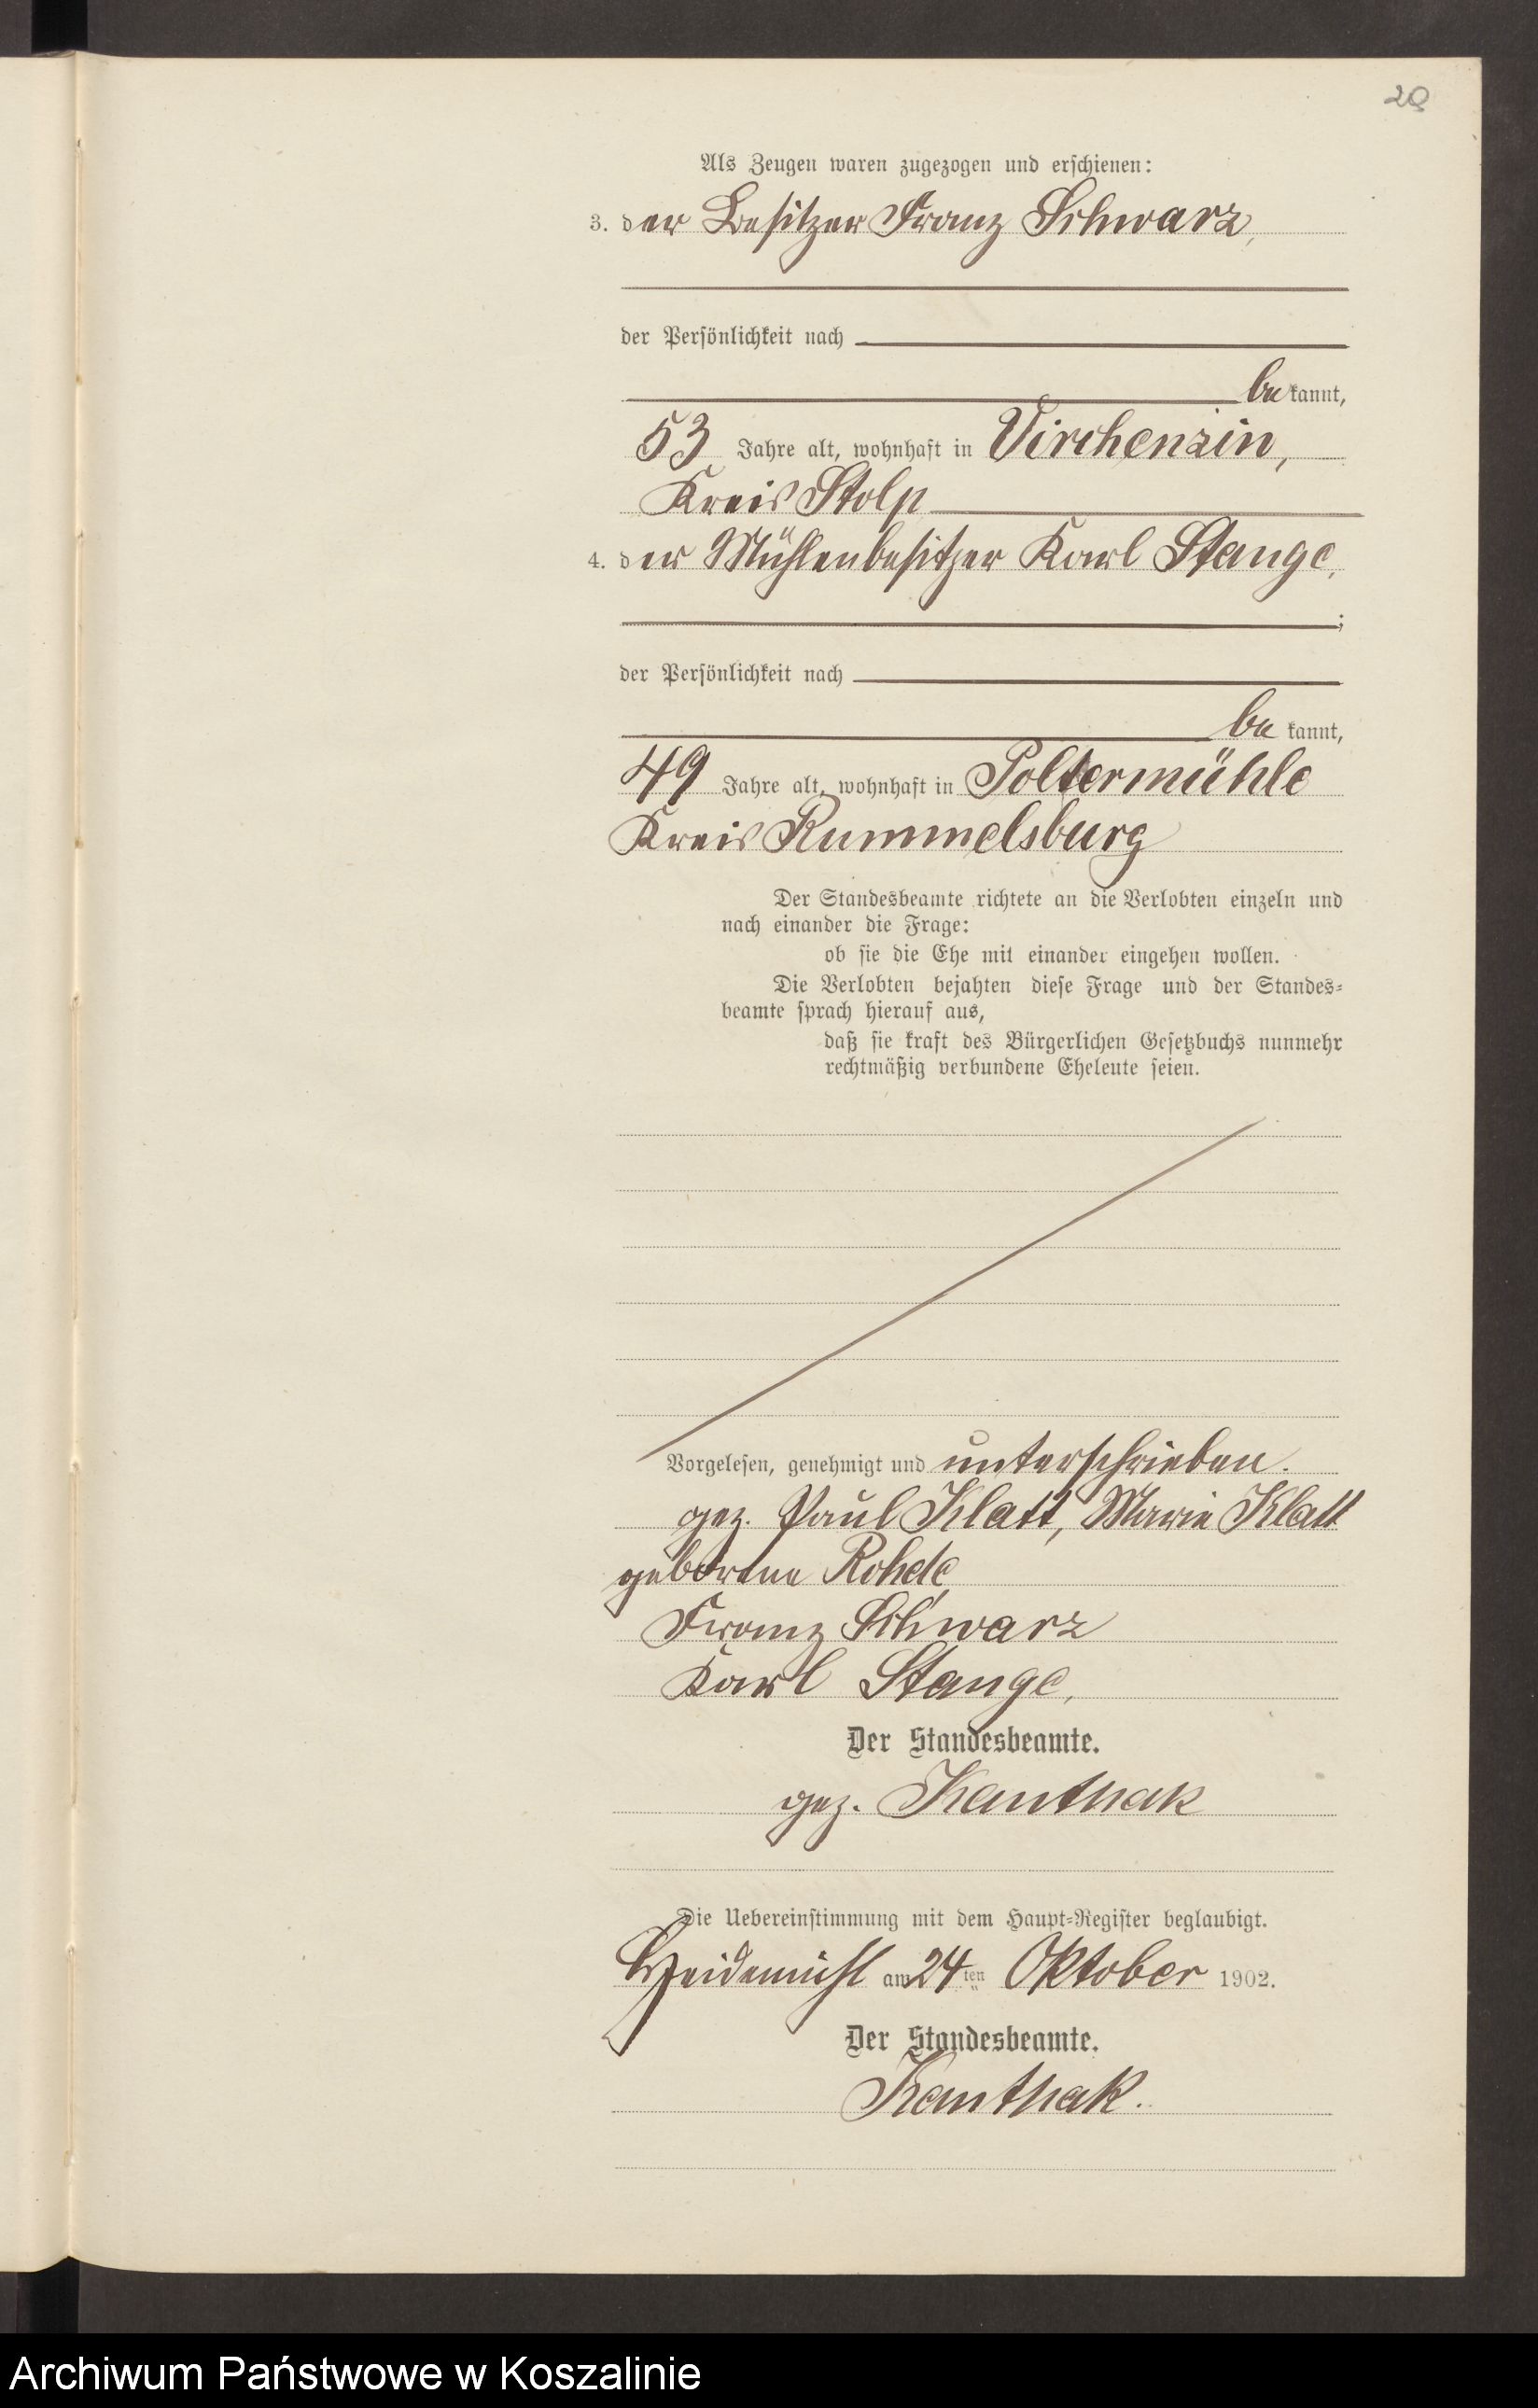 20
Als Zeugen waren zugezogen und erschienen:
3. der Besitzer Franz Schwarz,
der Persönlichkeit nach
be kannt,
53 Jahre alt, wohnhaft in Virchenzin,
Kreis Stolp
4. der Mühlenbesitzer Karl Stange,
;
der Persönlichkeit nach
be kannt,
49 Jahre alt, wohnhaft in Poltermühle
Kreis Rummelsburg
Der Standesbeamte richtete an die Verlobten einzeln und
nach einander die Frage:
ob sie die Ehe mit einander eingehen wollen.
Die Verlobten bejahten diese Frage und der Standes-
beamte sprach hierauf aus,
daß sie kraft des Bürgerlichen Gesetzbuchs nunmehr
rechtmäßig verbundene Eheleute seien.
Vorgelesen, genehmigt und unterschrieben.
gez. Paul Klatt, Marie Klatt
geborene Rohde,
Franz Schwarz
Karl Stange,
Der Standesbeamte.
gez. Kanthak
Die Uebereinstimmung mit dem Haupt-Register beglaubigt.
am 24 ten Oktober 1902.
Der Standesbeamte.
Kanthak.
Archiwum Państwowe w Koszalinie